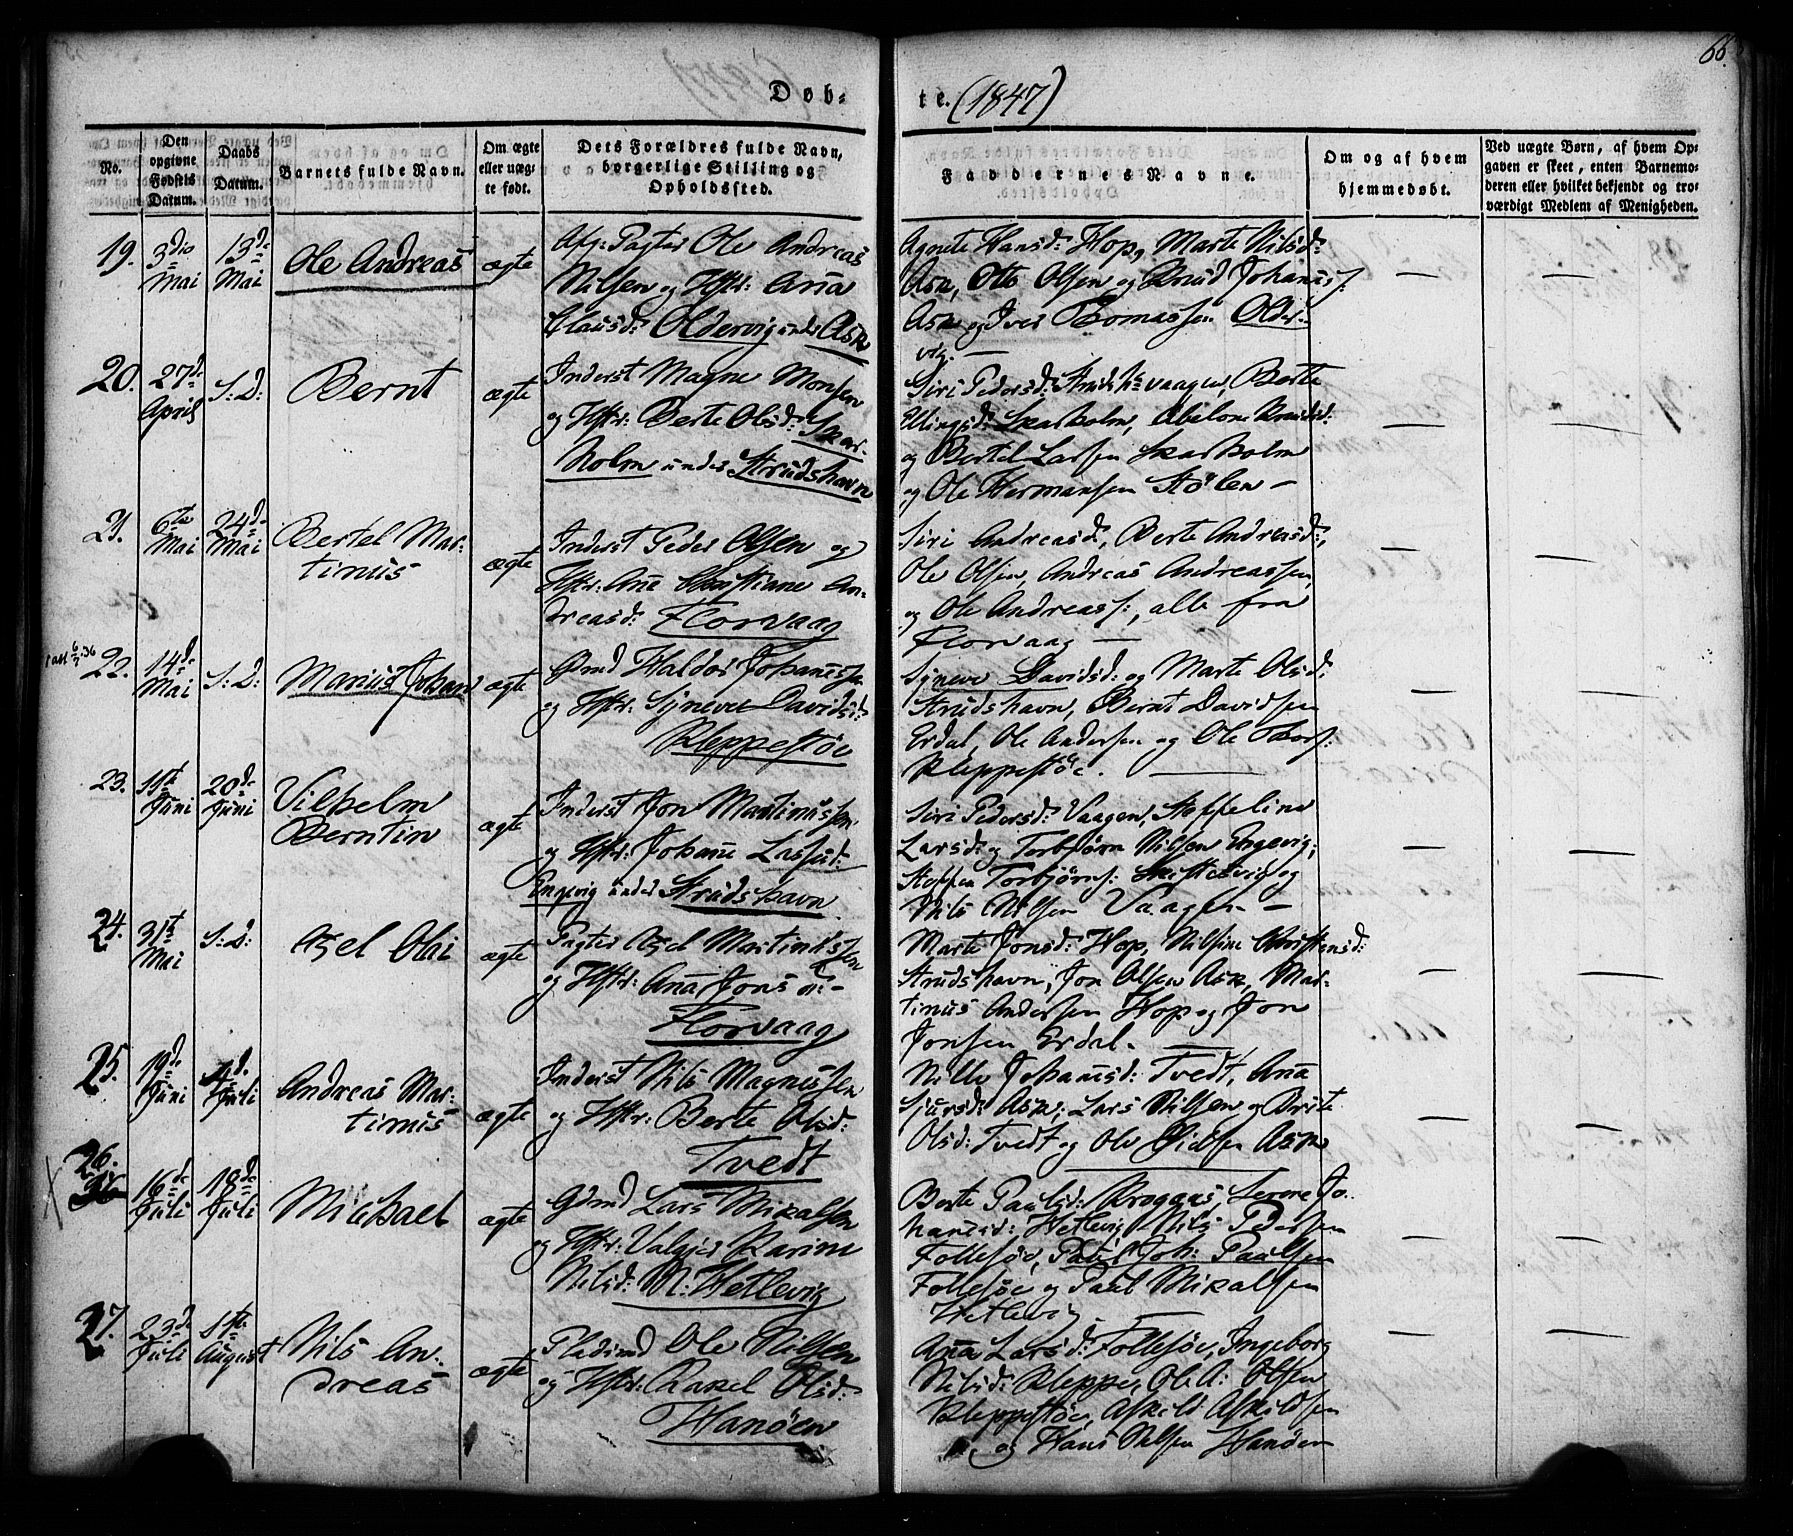 66.
Døb-
te. (1847)
No.
Den opgivne Fødsels Datum.
Daabs Datum.
Barnets fulde Navn.
Om ægte eller uægte født.
Dets Forældres fulde Navn, borgerlige Stilling og Opholdssted.
Faddernes Navne.
Om og af hvem hjemmedøbt.
Ved uægte Børn, af hvem Opgaven er skeet, enten Barnemoderen eller hvilket bekjendt og troværdigt Medlem af Menigheden.
19. 3die Mai
13de Mai
Ole Andreas
ægte
Afg: Pagter Ole Andreas
Nilsen og Hstr: Anna
Clausd: Oldervig under Ask
Agnete Hansd: Hop, Marte Nilsd:
Ask, Otto Olsen og Knud Johanns:
Ask og Iver Thomassen Older-
vig. —
20. 27de April
S: D:
Bernt
ægte
Inderst Magne Monsen
og Hstr: Berte Olsd: Skar-
holm under Strudshavn
Siri Pedersd: vaagen, Berte
Ellingsd: Skarholm, Abelone
og Bertel Larsen Skarholm
og Ole Hermansen Stølen —
21. 6te Mai
24de Mai
Bertel Mar-
tinus
ægte
Inderst Peder Olsen og
Hstr: Ane Christiane An-
dreasd: Florvaag
Siri Andreasd:, Berte Andreasd:,
Ole Olsen, Andreas Andreassen,
og Ole Andreass:, alle fra
Florvaag —
22. 14de Mai
S: D:
Marius Johan
ægte
Gmd Haldor Johannessen
og Hstr: Synneve Davidsd:
Kleppestøe
Synneve Davidsd: og Marte Olsd:
Strudshavn, Bernt Davidsen
Erdal, Ole Andersen og Ole
Kleppestøe. —
23. 11te Juni
20de Juni
Vilhelm
Berntin
ægte
Inderst Jon Martinussen
og Hstr: Johanne Lassesd:
Engevig under Strudshavn
Siri Pedersd: Vaagen, Stoppeline
Larsd: og Torbjørn Nilsen Engevig,
Steffen Torbjørns: Skiftesvig og
Nils Nilsen Vaagen —
24. 31te Mai
S: D:
Axel Olai
ægte
Pagter Axel Martinussen
og Hstr: Anna Jonsd: —
Florvaag
Marte Jonsd: Hop, Nilsine Christensd:
Strudshavn, Jon Olsen Ask, Mar-
tinus Andersen Hop og Jon
Jonsen Erdal. —
25. 19de Juni
4de Juli
Andreas Mar-
tinus
ægte
Inderst Nils Magnussen
og Hstr: Berte Olsd:
Tvedt
Nille Johannsd: Tvedt, Anna
Sjursd: Ask, Lars Nilsen og Brite
Olsd: Tvedt og Ole Ask
26. 16de Juli
18de Juli
Michael
ægte
Gdmd Lars Mikalsen
og Hstr: Valgjer Karine
Nilsd: N: Hetlevig
Berte Paulsd: Krogaas, Lerene Jo-
hannesd: Hetlevig, Nils Pedersen
Follesøe, Paul Joh: Paulsen
Follesøe og Paul Mikalsen
Hetlevig —
27. 23de Juli
1ste August
Nils An-
dreas
ægte
Pladsmd Ole Nilsen
og Hstr: Rakel Olsd:
Hanøen
Anna Larsd: Follesøe, Ingeborg
Nilsd: Kleppe, Ole A: Olsen
Kleppestøe, Askild Askildsen
og Hans Nilsen Hanøen